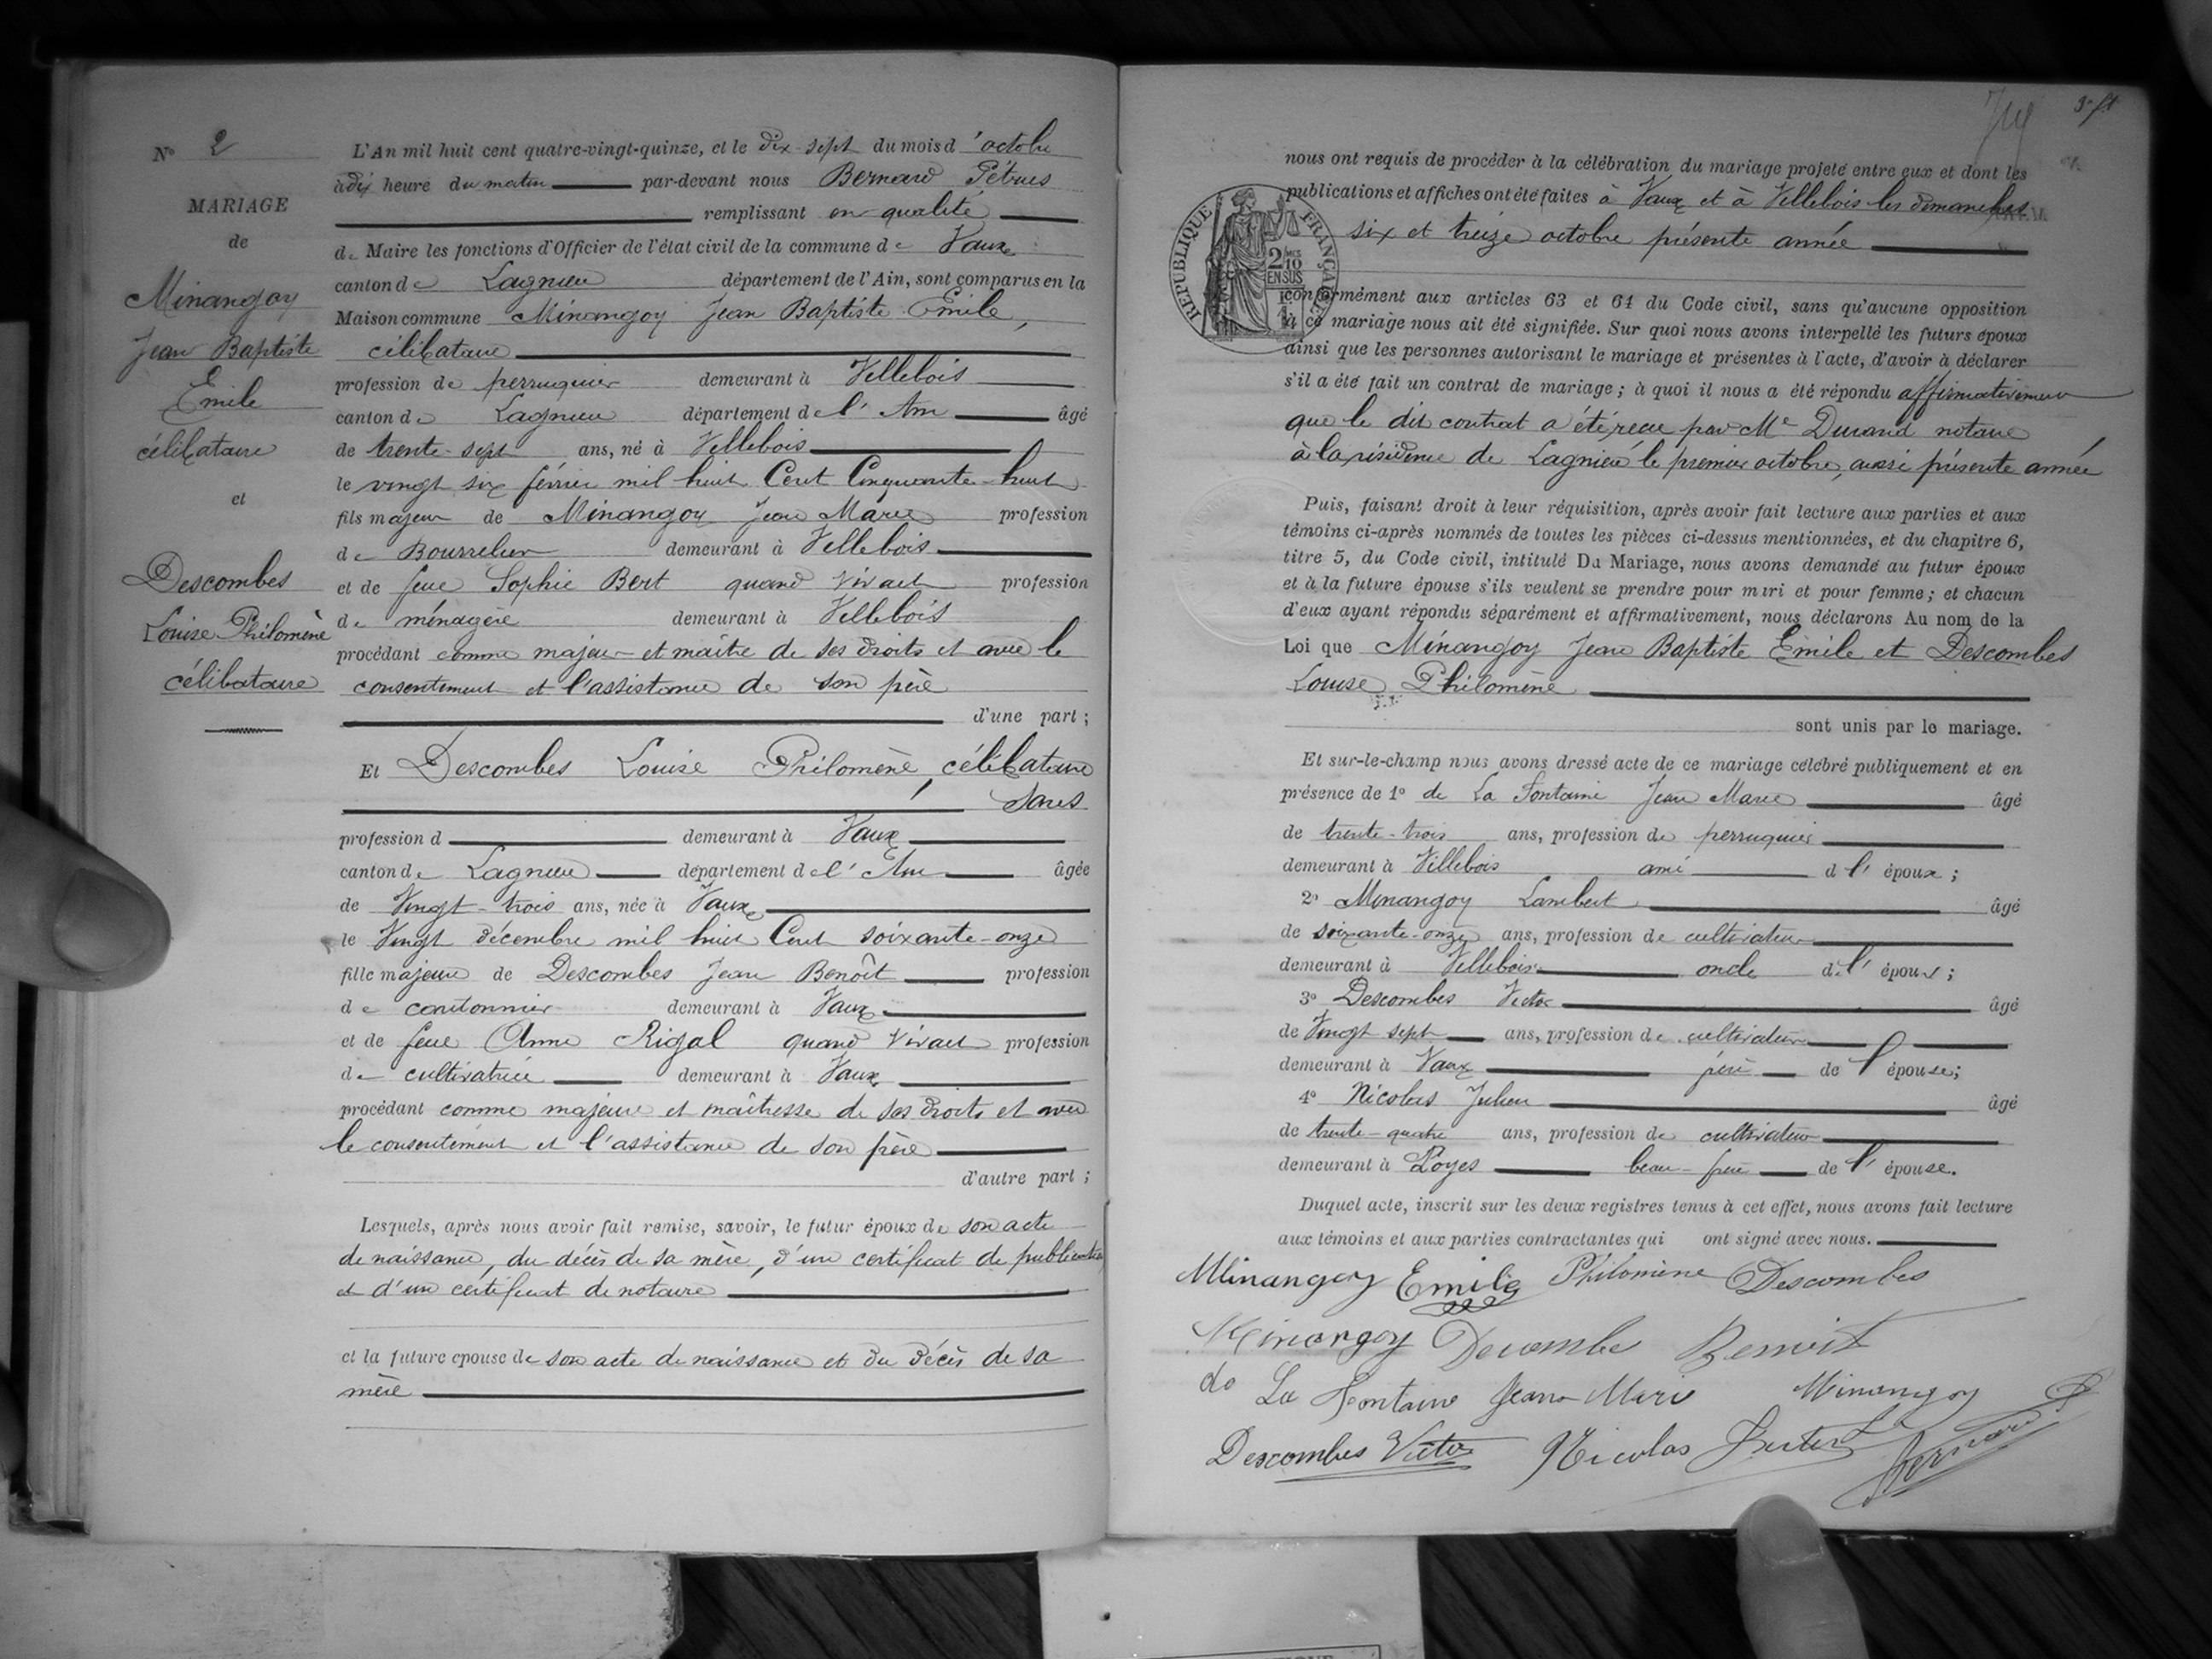 N° 2
MARIAGE
de
Minangoy
Jean Baptiste
Emile
célibataire
et
Descombes
Louise Philomène
célibataire
L'An mil huit cent quatre-vingt-quinze, et le dix-sept du mois d'octobre
à dix heure du matin par-devant nous Bernard Pétrus
remplissant en qualité
de Maire les fonctions d'Officier de l'état civil de la commune de Vaux
canton de Lagnieu département de l'Ain, sont comparus en la
Maison commune Minangoy Jean Baptiste Emile,
célibataire
profession de perruquier demeurant à Villebois
canton de Lagnieu département de l'Ain âgé
de trente-sept ans, né à Villebois
le vingt six février mil huit Cent Cinquante-huit
fils majeur de Minangoy Jean Marie profession
de Bourrelier demeurant à Villebois
et de feue Sophie Bert quand vivait profession
de ménagère demeurant à Villebois
procédant comme majeur et maître de ses droits et avec le
consentement et l'assistance de son père
d'une part;
Et Descombes Louise Philomène, célibataire
Sans
profession d demeurant à Vaux
canton de Lagnieu département de l'Ain âgée
de Vingt-trois ans, née à Vaux
le Vingt décembre mil huit Cent soixante-onze
fille majeure de Descombes Jean Benoît profession
de cantonnier demeurant à Vaux
et de feue Anne Rigal quand vivait profession
de cultivatrice demeurant à Vaux
procédant comme majeure et maîtresse de ses droits et avec
le consentement et l'assistance de son père
d'autre part;
Lesquels, après nous avoir fait remise, savoir, le futur époux de son acte
de naissance, du décès de sa mère, d'un certificat de publication
et d'un certificat de notaire
et la future épouse de son acte de naissance et du décès de sa
mère
nous ont requis de procéder à la célébration du mariage projeté entre eux et dont les
publications et affiches ont été faites à Vaux et à Villebois les dimanches
six et treize octobre présente année
REPUBLIQUE FRANÇAISE
2/10 EN SUS
conformément aux articles 63 et 64 du Code civil, sans qu'aucune opposition
à ce mariage nous ait été signifiée. Sur quoi nous avons interpellé les futurs époux
ainsi que les personnes autorisant le mariage et présentes à l'acte, d'avoir à déclarer
s'il a été fait un contrat de mariage; à quoi il nous a été répondu affirmativement
que le dit contrat a été reçu par Me Durand notaire
à la résidence de Lagnieu le premier octobre, aussi présente année
Puis, faisant droit à leur réquisition, après avoir fait lecture aux parties et aux
témoins ci-après nommés de toutes les pièces ci-dessus mentionnées, et du chapitre 6,
titre 5, du Code civil, intitulé Du Mariage, nous avons demandé au futur époux
et à la future épouse s'ils veulent se prendre pour mari et pour femme; et chacun
d'eux ayant répondu séparément et affirmativement, nous déclarons Au nom de la
Loi que Minangoy Jean Baptiste Emile et Descombes
Louise Philomène
sont unis par le mariage.
Et sur-le-champ nous avons dressé acte de ce mariage célébré publiquement et en
présence de 1° de La Fontaine Jean Marie âgé
de trente-trois ans, profession de perruquier
demeurant à Villebois ami d l' époux;
2° Minangoy Lambert âgé
de soixante-onze ans, profession de cultivateur
demeurant à Villebois oncle de l' époux;
3° Descombes Victor âgé
de Vingt sept ans, profession de cultivateur
demeurant à Vaux frère de l' épouse;
4° Nicolas Julien âgé
de trente-quatre ans, profession de cultivateur
demeurant à Loyes beau-frère de l' épouse.
Duquel acte, inscrit sur les deux registres tenus à cet effet, nous avons fait lecture
aux témoins et aux parties contractantes qui ont signé avec nous.
Minangoy Emile Philomène Descombes
Minangoy Decombe Benoit
de La Fontaine Jean Marie Minangoy
Descombes Victor Nicolas Bernard P